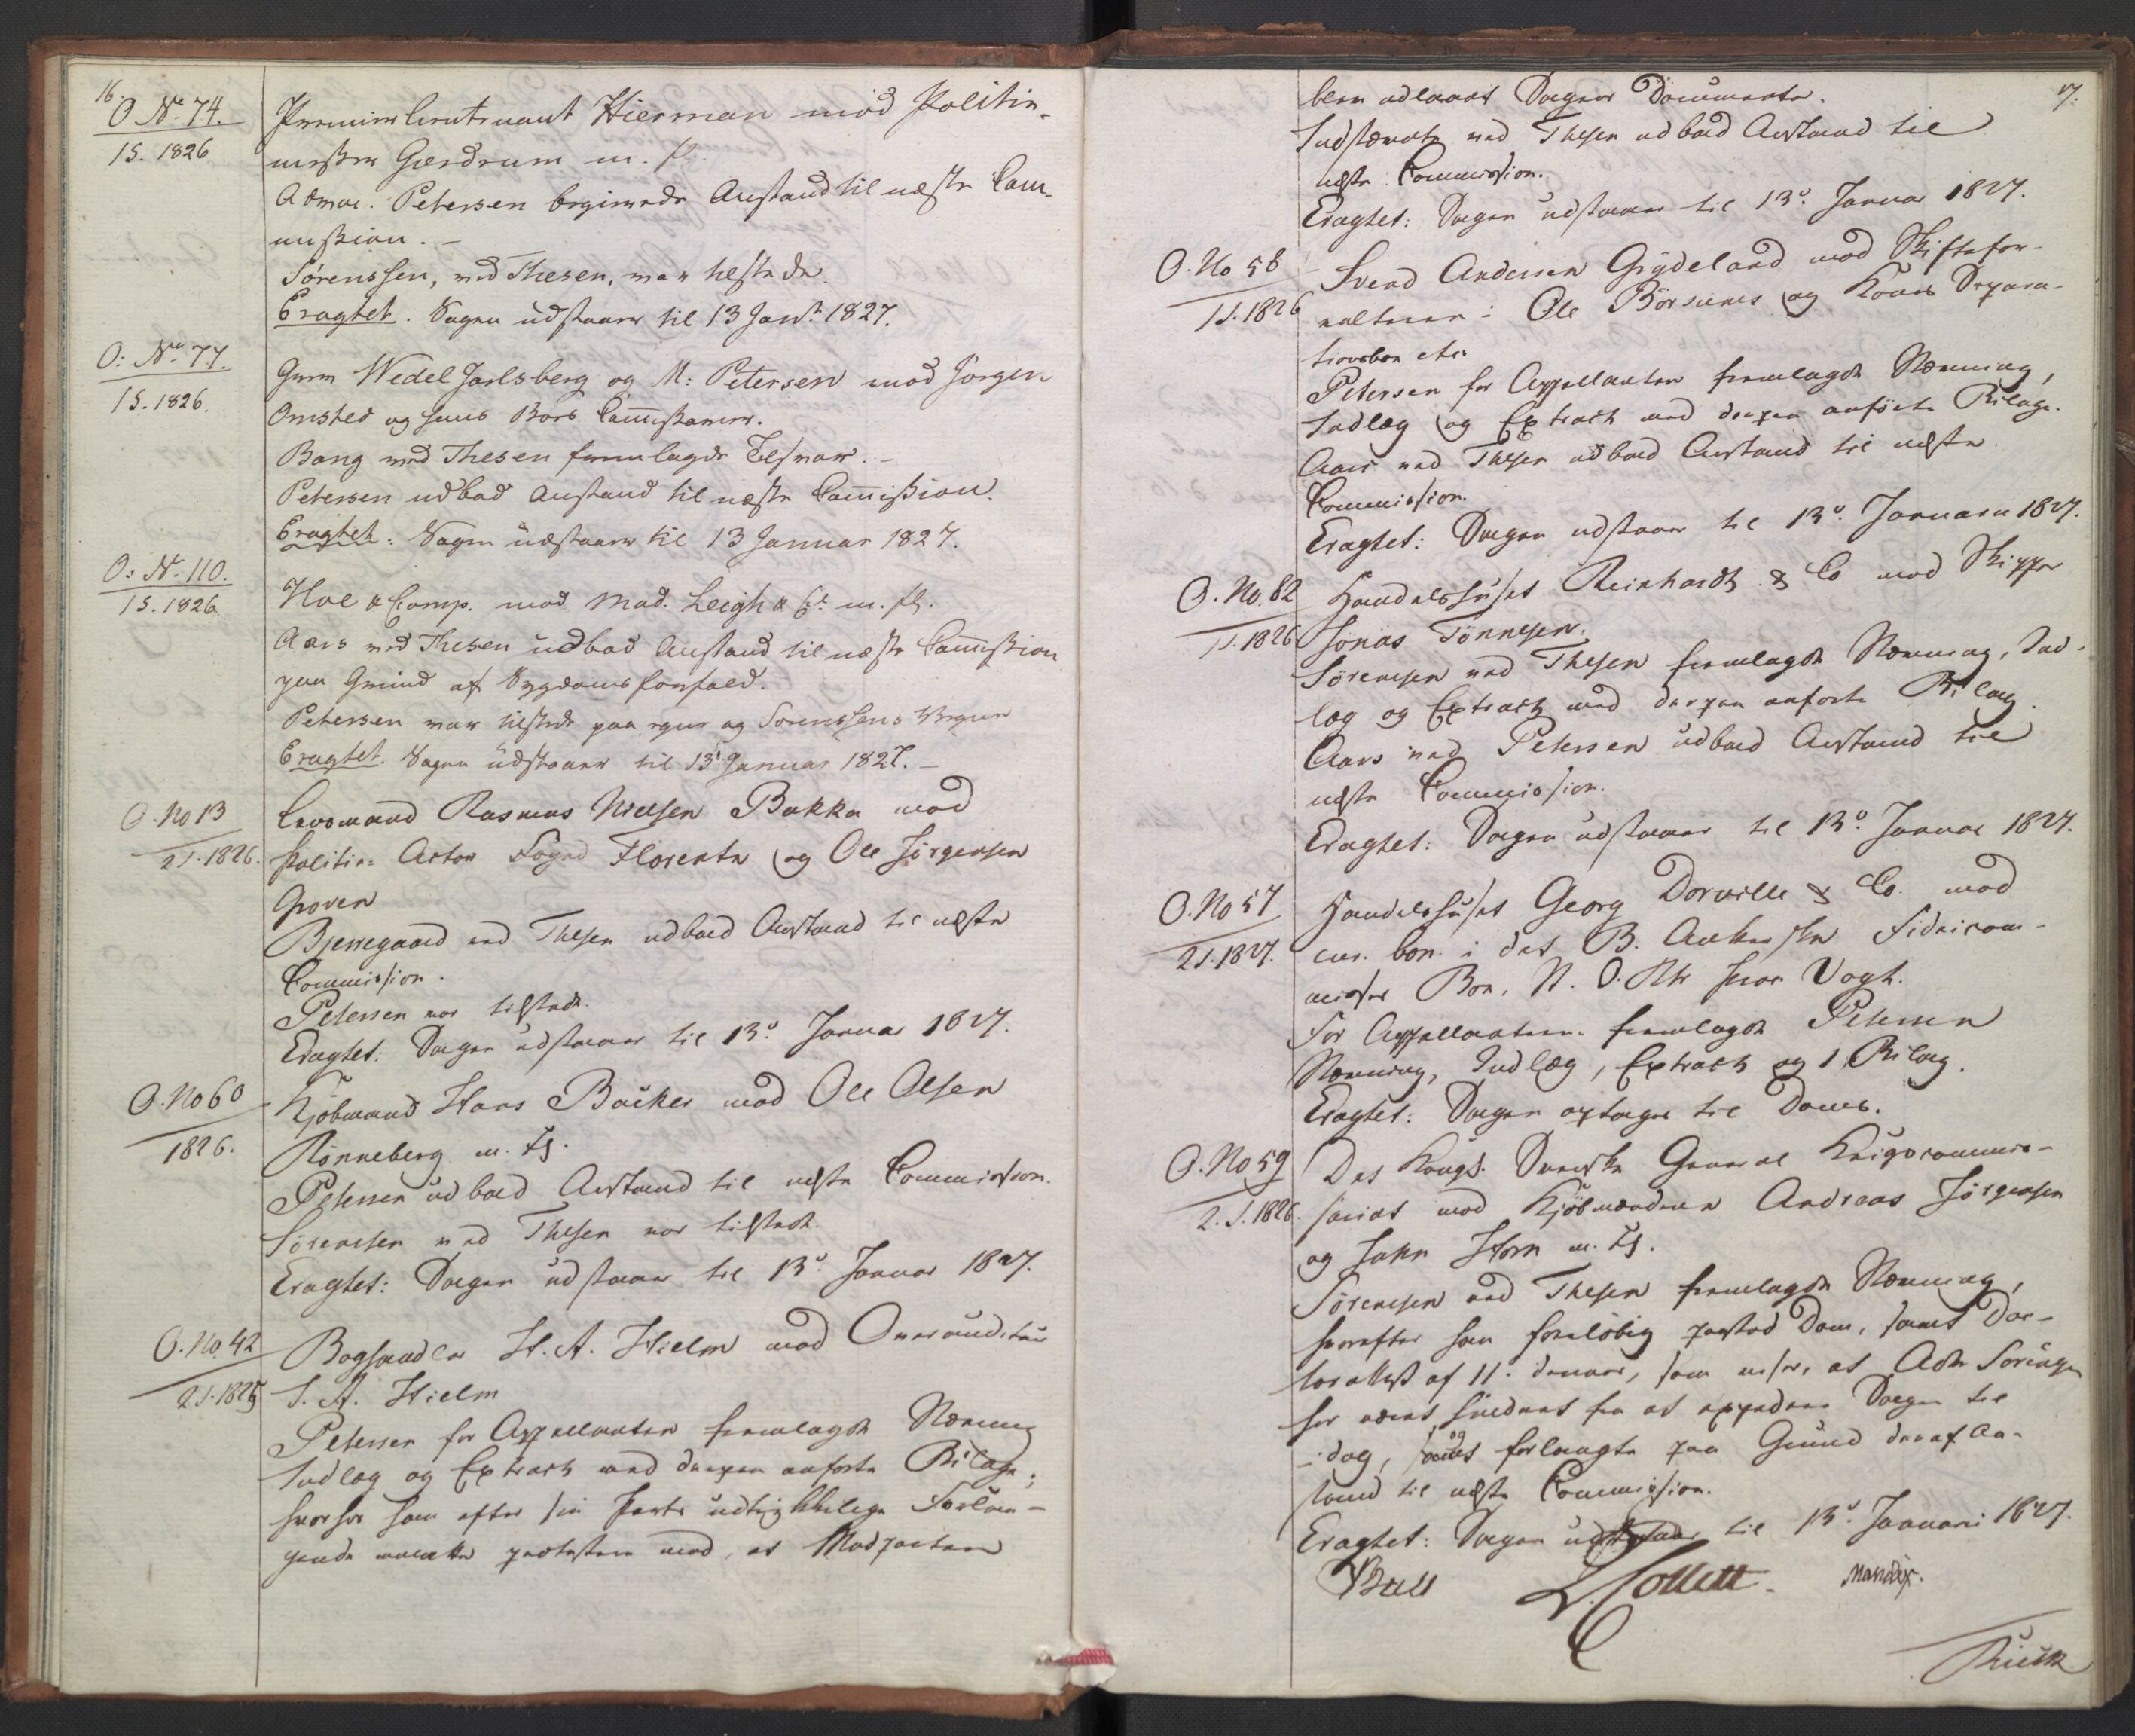 16.
O No. 74.
1S. 1826
Premierlieutenant Hierman mod Politie-
mester Gierdrum m. fl.
Advoc. Petersen begierede Anstand til næste Com-
mission. -
Sörenssen, ved Thesen, var tilstæde.
Eragtet. Sagen udstaaer til 13 Janr. 1827.
O: No. 77.
1S. 1826.
Grev Wedel Jarlsberg og M: Petersen mod Jörgen
Omsted og hans Boes Commissarier.
Bang med Thesen fremlagde Tilsvar. -
Petersen udbad Anstand til næste Commission.
Eragtet: Sagen udstaaer til 13 Januar 1827.
O: No. 110.
1S. 1826
Hoe & Comp. mod Mad. Leigh & Ct. m. fl.
Aars ved Thesen udbad Anstand til næste Commission
paa Grund af Sygdomsforfald.
Petersen var tilstede paa egne og Sörenssens Vegne
Eragtet. Sagen udstaaer til 13 Januar 1827. -
O. No 13
2S. 1826.
Lensmand Rasmus Nielsen Bakka mod
Politie-Actor Foged Florentz og Ole Jörgensen
Groven
Bjerregaard ved Thesen udbad Anstand til næste
Commission.
Petersen var tilstede.
Eragtet: Sagen udstaaer til 13de Januar 1827.
O. No 60
1826.
Kjöbmand Hans Backer mod Ole Olsen
Rönneberg m. fl.
Petersen udbad Anstand til næste Commission.
Sörensen ved Thesen var tilstede.
Eragtet: Sagen udstaaer til 13de Januar 1827.
O. No. 42
2S. 1825
Boghandler H. A. Hielm mod Overauditeur
J. A. Hielm
Petersen for Appellanten fremlagde Stevning
Indlæg og Extract med derpaa anförte Bilage;
hvorhos han efter sin Parts udtrykkelige Forlan-
gende maatte protestere mod, at Modparten
17.
blev udlaant Sagens Documenter.
Indstevnte ved Thesen udbad Anstand til
næste Commission.
Eragtet: Sagen udstaaer til 13de Januar 1827.
O. No 58
1S. 1826
Svend Andersen Grydeland mod Skiftefor-
valteren i Ole Börsums og Kones Separa-
tionsboe etc.
Petersen for Appellanten fremlagde Stevning,
Indlæg og Extract med derpaa anförte Bilage.
Aars ved Thesen udbad Anstand til næste
Commission.
Eragtet: Sagen udstaaer til 13de Januar 1827.
O. No. 82
1S. 1826
Handelshuset Reinhardt & Co mod Skipper
Jonas Tönnesen.
Sörensen ved Thesen fremlagde Stevning, Ind-
læg og Extract med derpaa anförte Bilag.
Aars ved Petersen udbad Anstand til
næste Commission.
Eragtet: Sagen udstaaer til 13de Januar 1827.
O. No 57
2S. 1827.
Handelshuset Georg Dorville & Co. mod
cur. bon. i det B. Ankerske Fideicom-
misses Boe, N. O. Rtr Vogt.
For Appellanterne fremlagde Petersen
Stevning, Indlæg, Extract og 1 Bilag.
Eragtet: Sagen optages til Doms.
O. No 59
2. S. 1826.
Det Kongl. Svenske General Krigscommis-
sariat mod Kjöbmændene Andreas Jörgensen
og John Horn m. fl.
Sörensen ved Thesen fremlagde Stevning,
hvorefter han foreløbig paastod Dom, samt Doc-
torattest af 11. dennes, som viser, at Adv. Sörensen
har været hindret fra at expedere Sagen til
idag, og forlangte paa Grund deraf An-
stand til næste Commission.
Eragtet: Sagen udstaaer til 13de Januari 1827.
Bull J. Collett. Mandix.